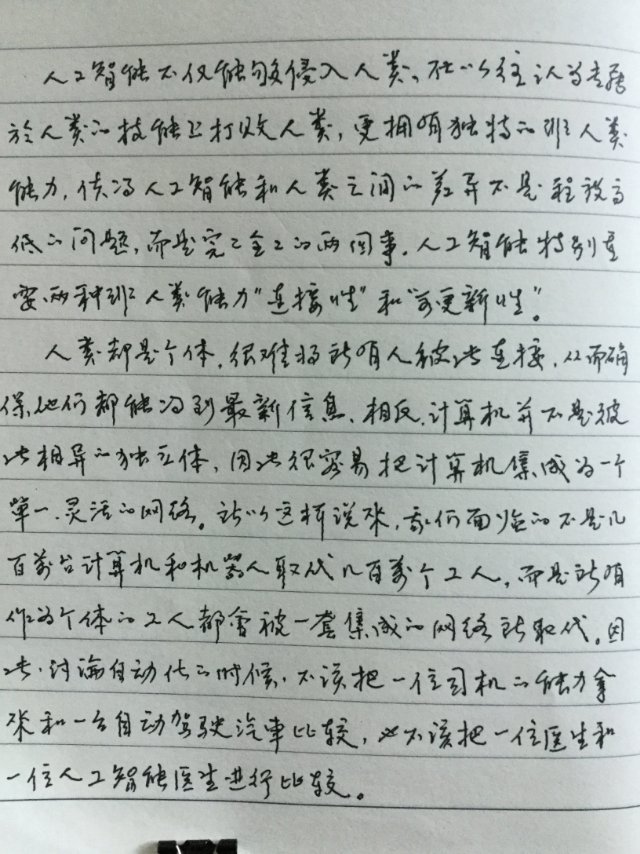 人工智能不仅能够侵入人类,在以往认为专属
於人类的技能上打败人类,更拥有独特的非人类
能力,使得人工智能和人类之间的差异不是程度高
低的问题,而是完完全全的两回事.人工智能特别重
要的两种非人类能力“连接性”和“可更新性”。
人类都是个体,很难将所有人彼此连接,从而确
保他们都能得到最新信息,相反,计算机并不是彼
此相异的独立体,因此很容易把计算机集成为一个
单一、灵活的网络。所以这样说来,我们面临的不是几
百万台计算机和机器人取代几百万个工人,而是所有
作为个体的工人都会被一套集成的网络所取代.因
此,讨论自动化的时候,不该把一位司机的能力拿
来和一台自动驾驶汽車比较,也不该把一位医生和
一位人工智能医生进行比较。